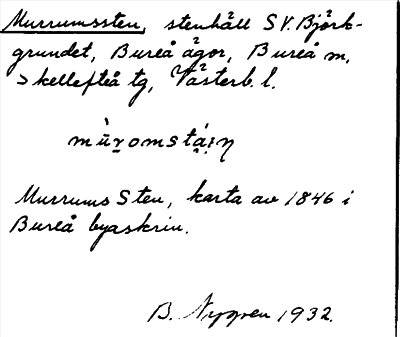 Murrumssten, stenhäll S V. Björk-
grundet, Bureå ägor, Bureå m,
Skellefteå tg, Västerb. l.
Murrums Sten, karta av 1846 i
Bureå byaskrin.
B. Nygren 1932.